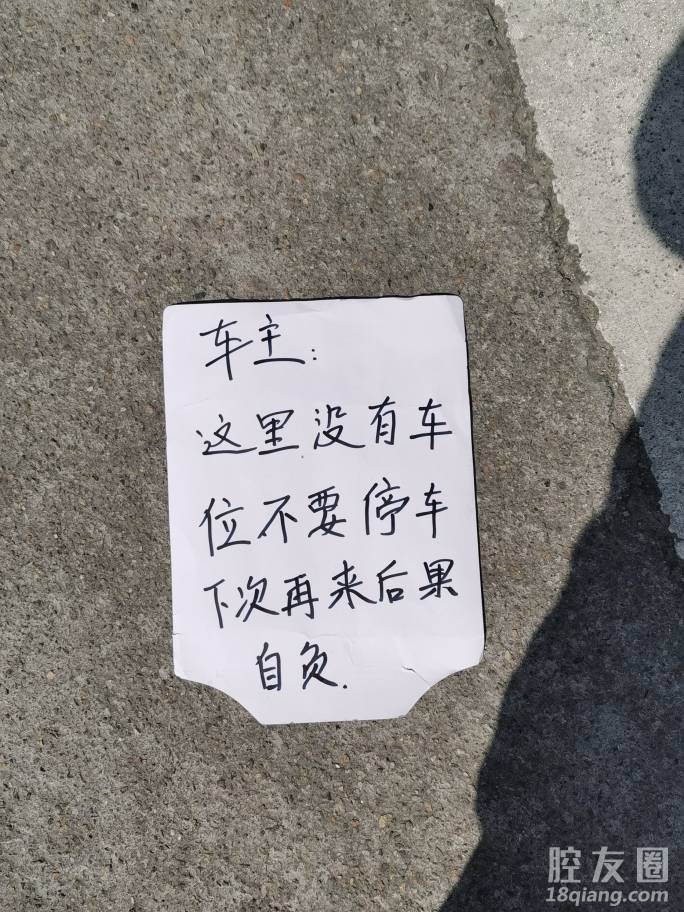 车主:
这里没有车
位不要停车
下次再来后果
自负.
腔友圈
18qiang.com